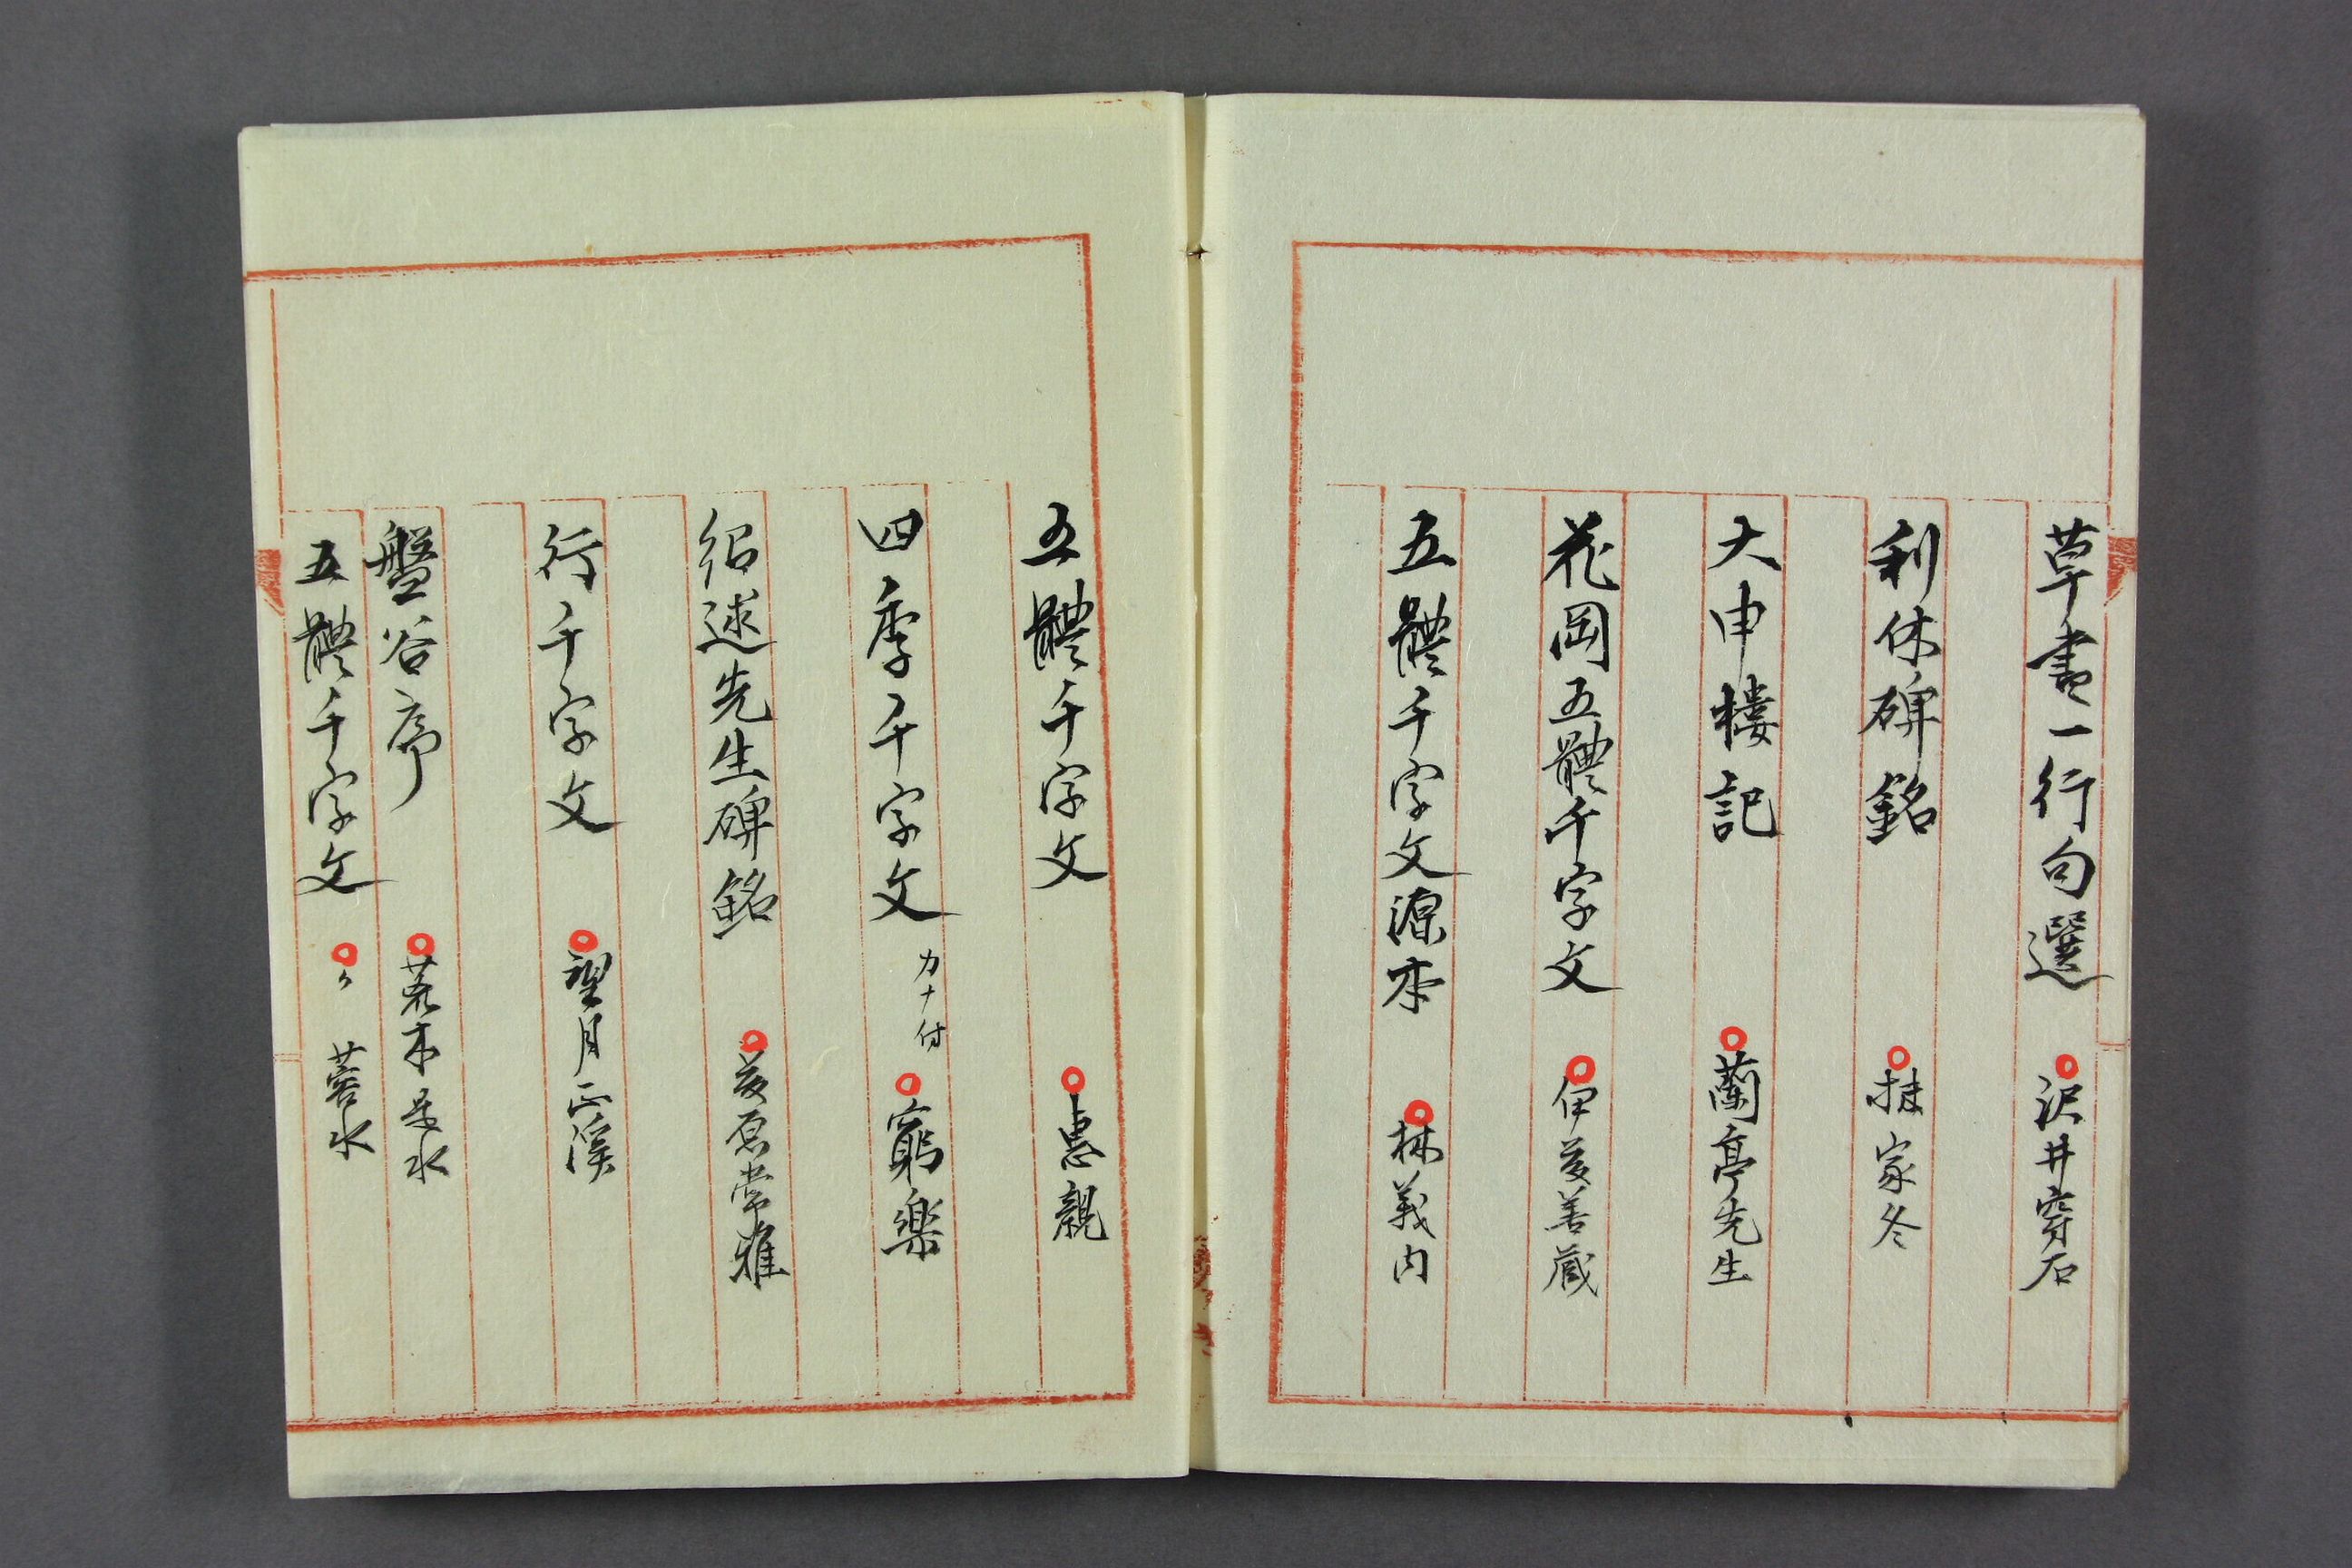 草書一行句選 沢井穿石
利休碑銘 家冬
大申樓記 蘭亭先生
花岡五體千字文 伊藤善蔵
五體千字文源本 林義内
五體千字文 惠親
四季千字文 カナ付 窮樂
紹述先生碑銘 藤原常雅
行千字文 望月正溪
盤谷序 荒木是水
五體千字文 蓉水